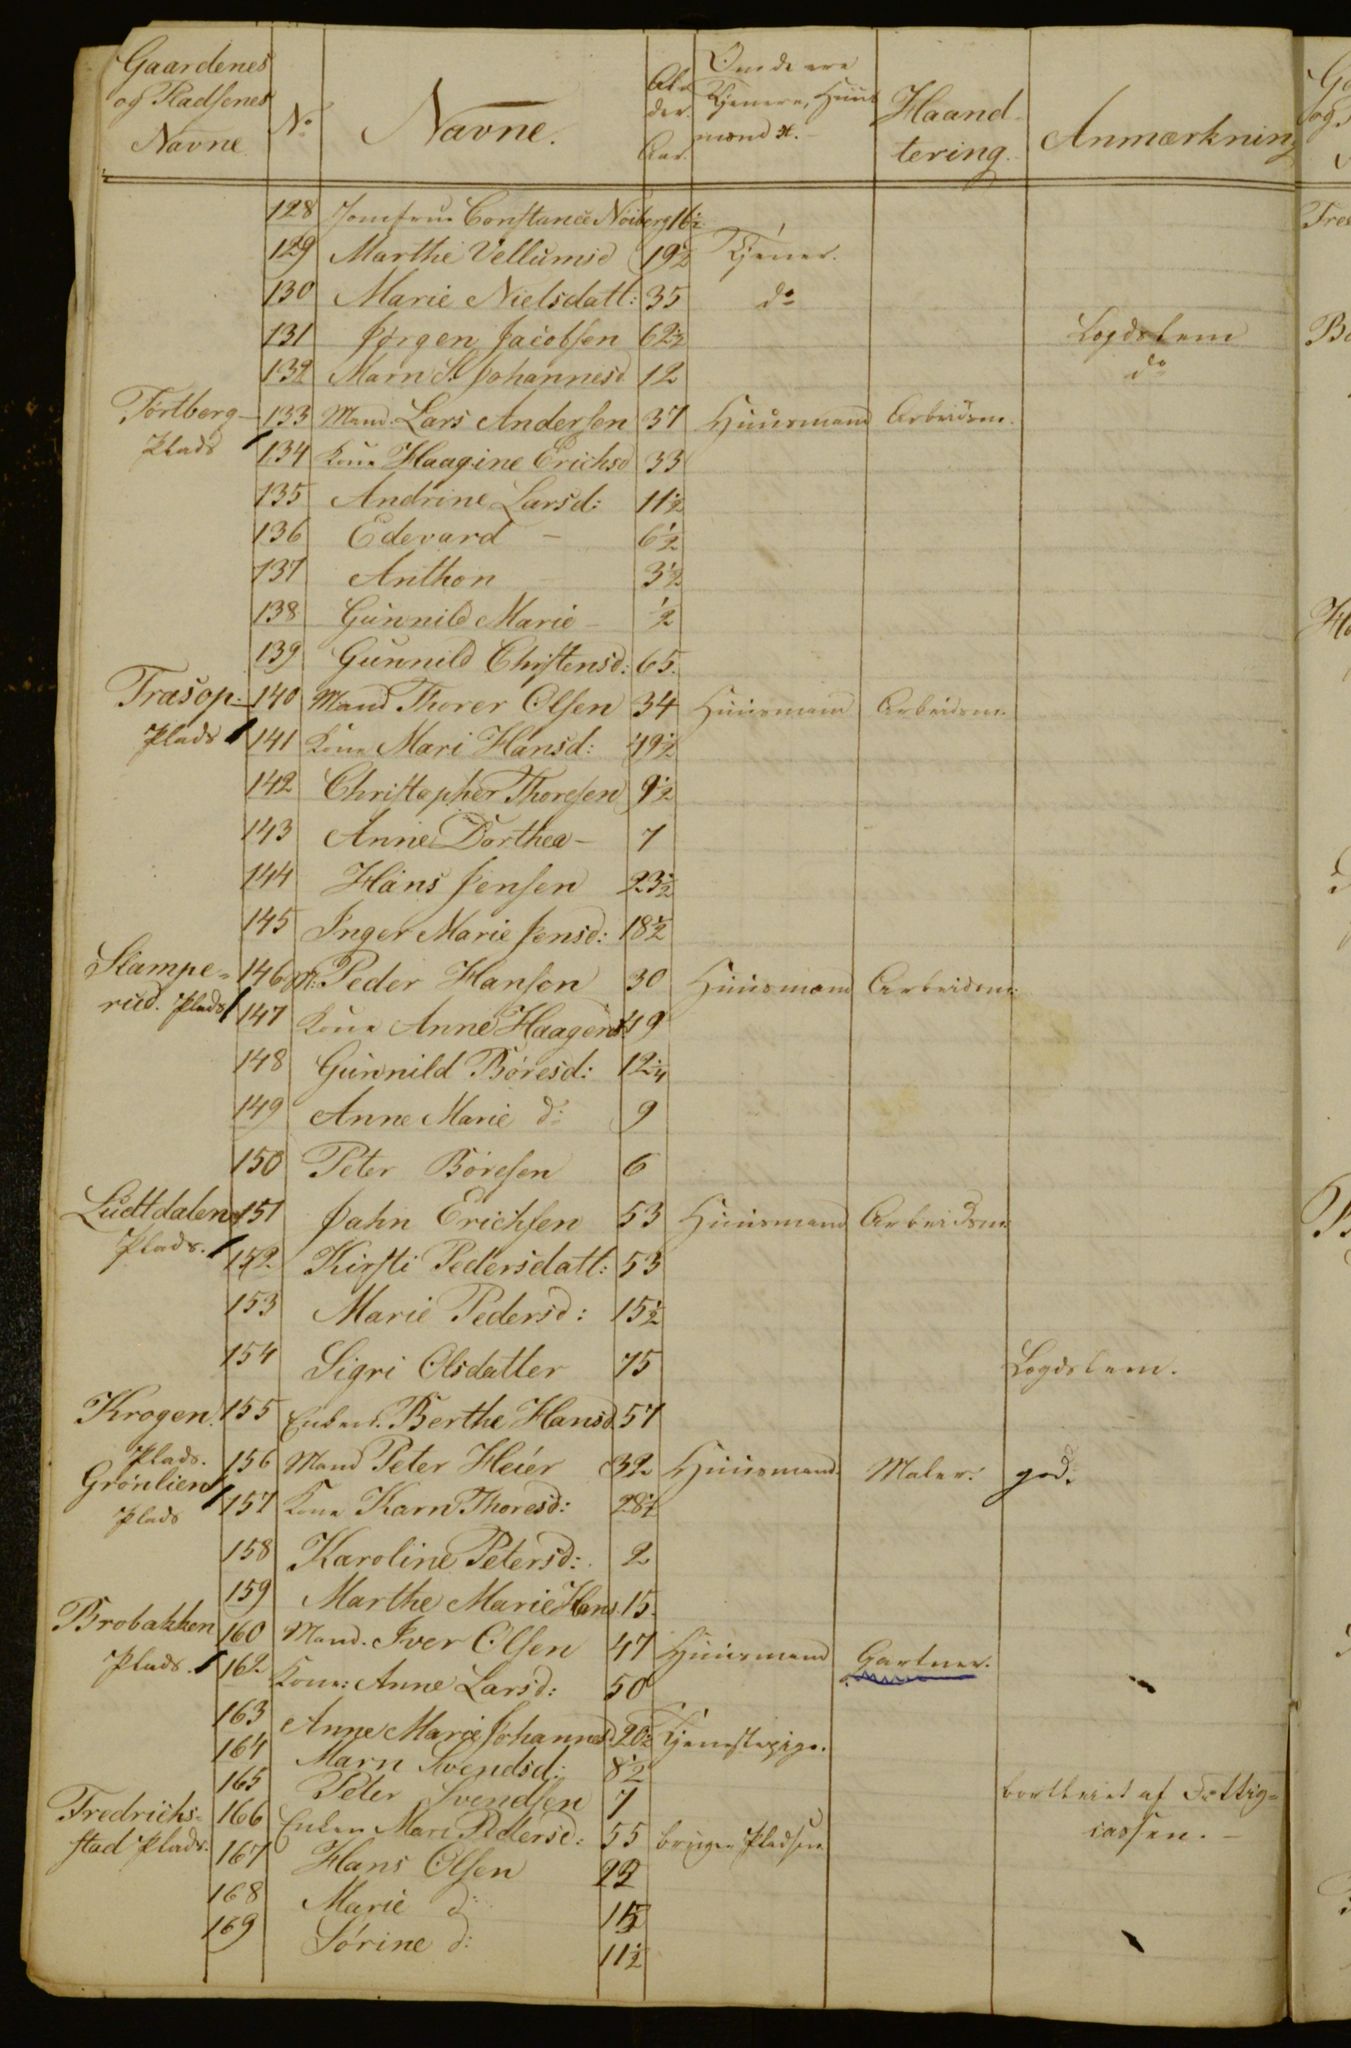 Gaardenes og Pladsenes Navne No Navne. Al- der. Aar. Om de ere Tjenere, Huus mænd &. Haand- tering. Anmærkning
128 Jomfrue Constance Nöiberg 16½
129 Marthe Vellumsd 19½ Tjener.
130 Marie Nielsdatt: 35 do
131 Jørgen Jacobsen 62½ Logdslem
132 Marn St Johannesd 12 do
Tortberg- 133 Mand. Lars Andersen 37 Huusmand Arbeidsm.
Plads 134 Kone Haagine Erichsd 33
135 Andrine Larsd: 11½
136 Edevard - 6½
137 Anthon 3½
138 Gunnild Marie - ½
139 Gunnild Chistensd: 65.
Træsop- 140 Mand Thorer Olsen 34 Huusmand Arbeidsm.
Plads 141 Kone Mari Hansd: 49½
142 Christopher Thoresen 9½
143 Anne Dorthea - 7
144 Hans Jensen 23½
145 Inger Marie Jensd: 18½
Stampe- 146 M: Peder Hanson 30 Huusmand Arbeidsm:
rud. Plads 147 Kone Anne Haagensd 49
148 Gunnild Böresd: 12¼
149 Anne Marie do 9
150 Peter Böresen 6
Ludtdalen 151 Jahn Erichsen 53 Huusmand Arbeidsm
Plads. 152 Kirsti Pedersdatt: 53
153 Marie Pedersd: 15½
154 Sigri Olsdatter 75 Logdslem.
Krogen. 155 Enkem. Berthe Hansd 57
Plads. 156 Mand Peter Heier 32 Huusmand. Maler. god.
Grönlien 157 Kone Karn Thoresd: 28½
Plads
158 Karoline Petersd: 2
159 Marthe Marie Hans 15.
Brobakken 160 Mand. Iver Olsen 47 Huusmand Gartner.
Plads. 162 Kone: Anne Larsd: 50
163 Anne Marie Johannesd 20½ Tjenestepige.
164 Marn Svendsd: 8½
165 Peter Svendsen 7 bortleiet af Fattig-
Fredrichs- 166 Enken Mari Pedersd: 55 bruger Pladsen cassen. -
stad Plads. 167 Hans Olsen 22
168 Marie d: 15
169 Sörine d: 11½